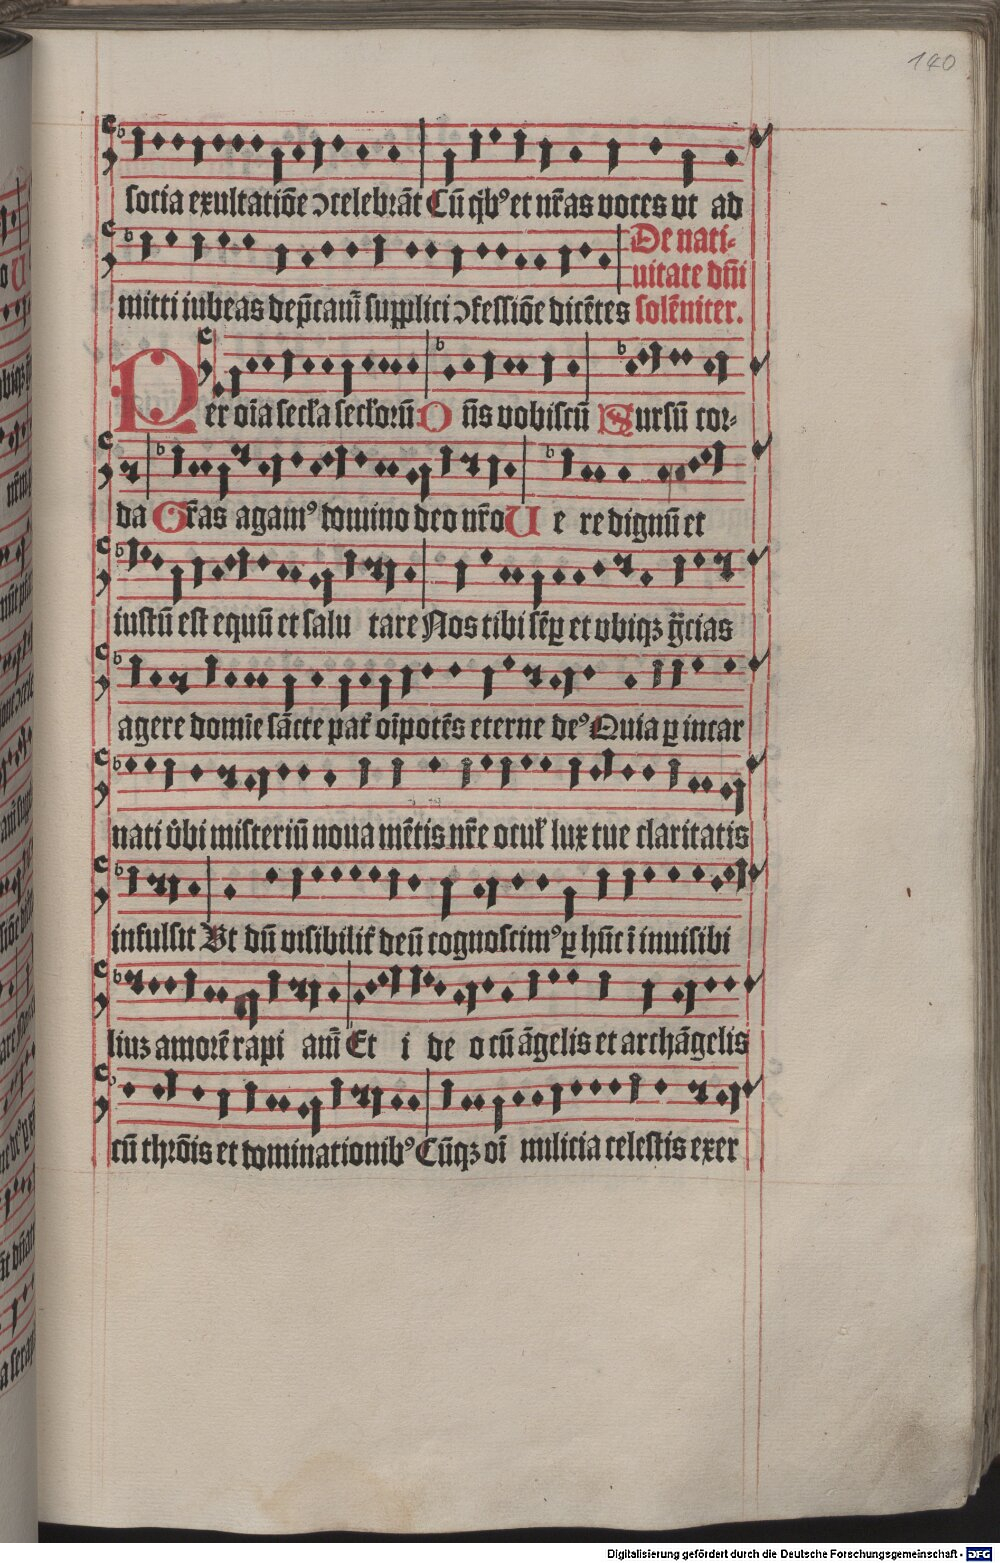 140
socia exultatiõe ↄcelebrãt Cũ q̃bꝰ et nr̃as voces vt ad
De nati-
mitti iubeas dep̃camĩ supplici ↄfessiõe dicẽtes
uitate dñi
solẽniter.
Per oĩa secĺa secĺorũ Dñs vobiscũ Sursũ cor-
da Gr̃as agamꝰ domino deo nr̃o Ue re dignũ et
iustũ est equũ et salu tare Nos tibi sẽꝑ et vbiqꝫ gr̃cias
agere domĩe sãcte pať oĩpotẽs eterne deꝰ Quia ꝑ incar
nati v̓bi misteriũ noua mẽtis nr̃e ocuľ lux tue claritatis
infulsit Vt dũ visibiliť deũ cognoscimꝰ ꝑ hũc ĩ inuisibi
liuꝫ amorẽ rapi amĩ Et i de o cũ ãgelis et archãgelis
cũ thrõis et dominationibꝰ Cũqꝫ oĩ milicia celestis exer
Digitalisierung gefördert durch die Deutsche Forschungsgemeinschaft - DFG